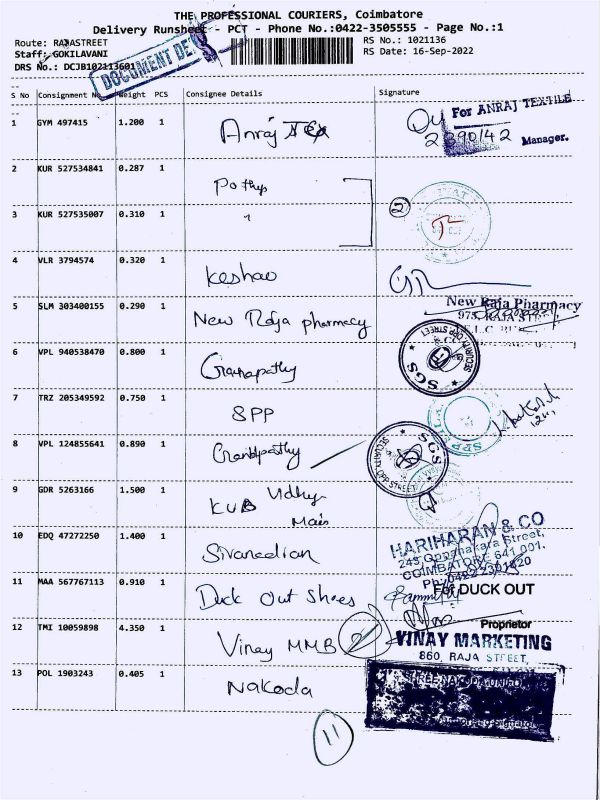 THE PROFESSIONAL COURIERS, Coimbatore
Delivery Runsheet - PCT - Phone No.:0422-3505555 - Page No.:1
Route: RAJASTREET
RS No.: 1021136
Staff: GOKILAVANI
RS Date: 16-Sep-2022
DRS No.: DCJB102113601
DOCUMENT DE
S No Consignment N Weight PCS Consignee Details Signature
1 GYM 497415 1.200 1 Anraj Tex
For ANRAJ TEXTILE
Manager.
2 KUR 527534841 0.287 1 Pothys
3 KUR 527535007 0.310 1 "
2
4 VLR 3794574 0.320 1 Keshao
5 SLM 303400155 0.290 1 New Raja pharmacy
New Raja Pharmacy
975, RAJA STREET
6 VPL 940538470 0.800 1 Ganapathy
SGS
SECURITY OPP STREET
7 TRZ 205349592 0.750 1 SPP
SPP
8 VPL 124855641 0.890 1 Ganapathy
SGS
SECURITY OPP STREET
9 GDR 5263166 1.500 1 KVB Vidhya
Main
10 EDQ 47272250 1.400 1 Sivanadian
HARIHARAN & CO
245 Oppanakara Street,
COIMBATORE 641 001.
Ph: 0422 2301420
11 MAA 567767113 0.910 1 Duck Out Shoes
For DUCK OUT
Proprietor
12 TMI 10059898 4.350 1 Vinay MMB
VINAY MARKETING
860, RAJA STREET,
13 POL 1903243 0.405 1 Nakoda
11